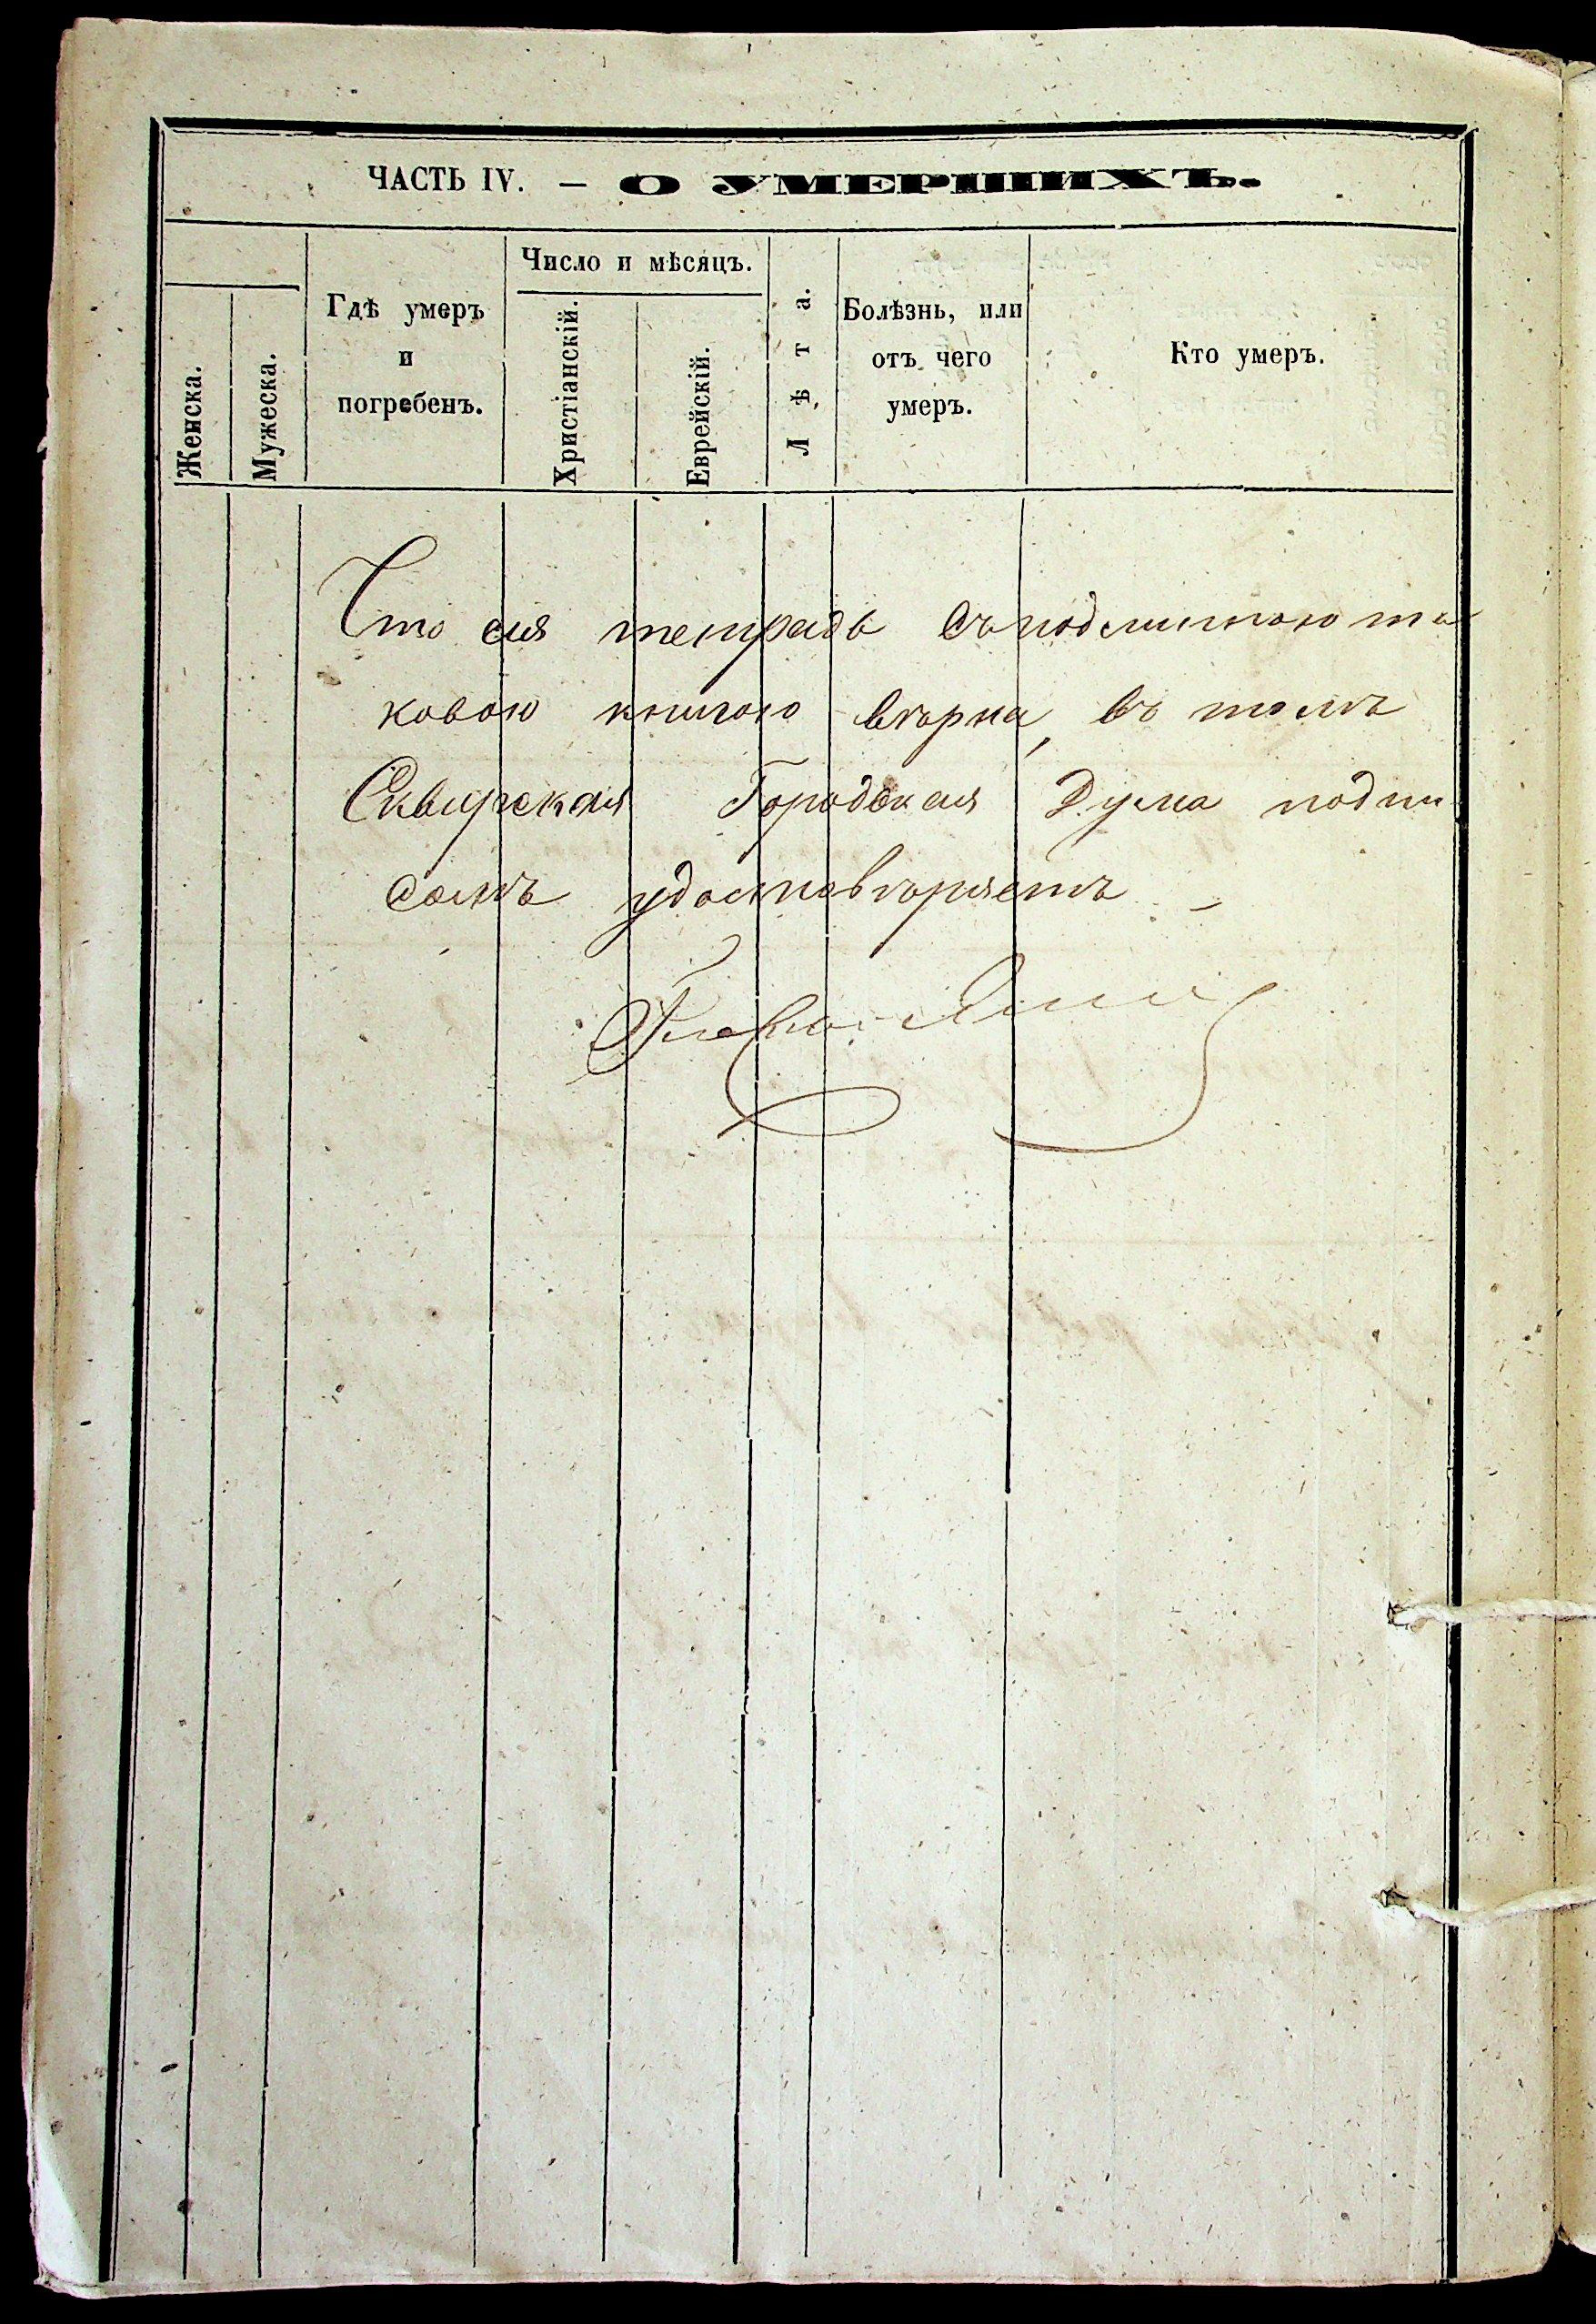 ЧАСТЬ IV. — О УМЕРШИХЪ.
Женска.
Мужеска.
Гдѣ умеръ
и
погребенъ.
Число и мѣсяцъ.
Христіанскій.
Еврейскій.
Лѣта.
Болѣзнь, или
отъ чего
умеръ.
Кто умеръ.
Что сія тетрадь съ подлинною та
ковою книгою вѣрна, въ томъ
Сквирская Городская Дума подпи
сомъ удостовѣряетъ –